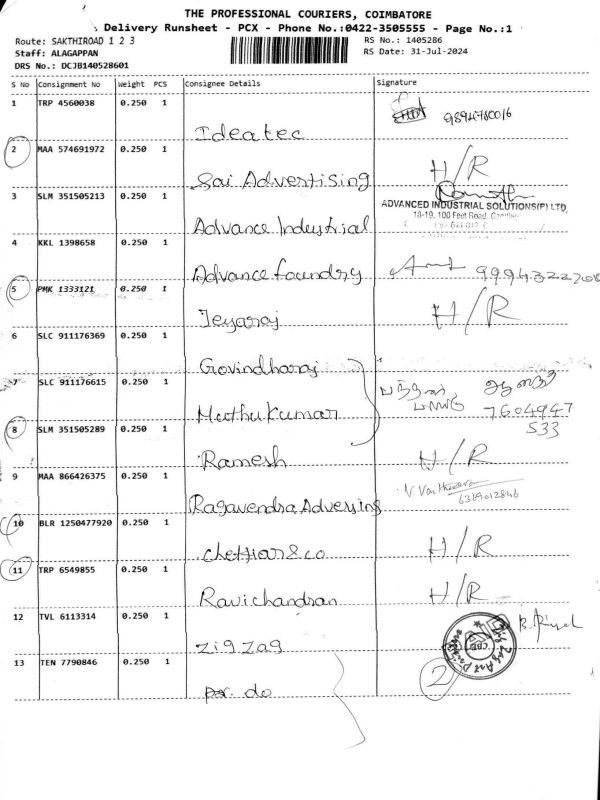 THE PROFESSIONAL COURIERS, COIMBATORE
Delivery Runsheet - PCX - Phone No.:0422-3505555 - Page No.:1
Route: SAKTHIROAD 1 2 3
RS No.: 1405286
Staff: ALAGAPPAN
RS Date: 31-Jul-2024
DRS No.: DCJB140528601
S No Consignment No Weight PCS Consignee Details Signature
1 TRP 4560038 0.250 1
Ideatec
2 MAA 574691972 0.250 1
Sai Advertising H/R
3 SLM 351505213 0.250 1
ADVANCED INDUSTRIAL SOLUTIONS(P) LTD,
18-19, 100 Feet Road,
Advance Industrial
4 KKL 1398658 0.250 1
Advance foundry
5 PMK 1333121 0.250 1
Jeyaraj H/R
6 SLC 911176369 0.250 1
Govindharaj
7 SLC 911176615 0.250 1
Muthukumar 7604947
533
8 SLM 351505289 0.250 1
Ramesh H/R
9 MAA 866426375 0.250 1
6369012846
Ragavendra Adverssing
10 BLR 1250477920 0.250 1
Chettiar & co H/R
11 TRP 6549855 0.250 1
Ravichandran H/R
12 TVL 6113314 0.250 1
zigzag
13 TEN 7790846 0.250 1
do
2